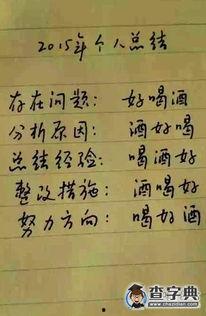 2015年个人总结
存在问题： 好喝酒
分析原因： 酒好喝
总结经验： 喝酒好
整改措施： 酒喝好
努力方向： 喝好酒
查字典
www.chazidian.com